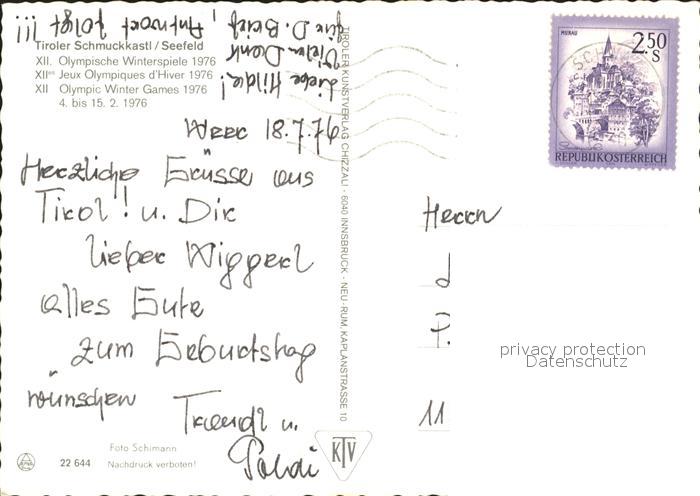 Tiroler Schmuckkastl / Seefeld
XII. Olympische Winterspiele 1976
XIIes Jeux Olympiques d'Hiver 1976
XII Olympic Winter Games 1976
4. bis 15. 2. 1976
Liebe Hilde!
Vielen Dank
für D. Brief,
Antwort folgt !!!
18.7.76
Herzliche Grüsse aus
Tirol! u. Dir
lieber Wiggerl
alles Gute
zum Geburtstag
wünschen
Traudl u.
Poldi
Foto Schimann
22 644 Nachdruck verboten!
TIROLER KUNSTVERLAG CHIZZALI · 6040 INNSBRUCK - NEU-RUM, KAPLANSTRASSE 10
KTV
MURAU
2.50
S
REPUBLIK ÖSTERREICH
Herrn
P.
11
privacy protection
Datenschutz